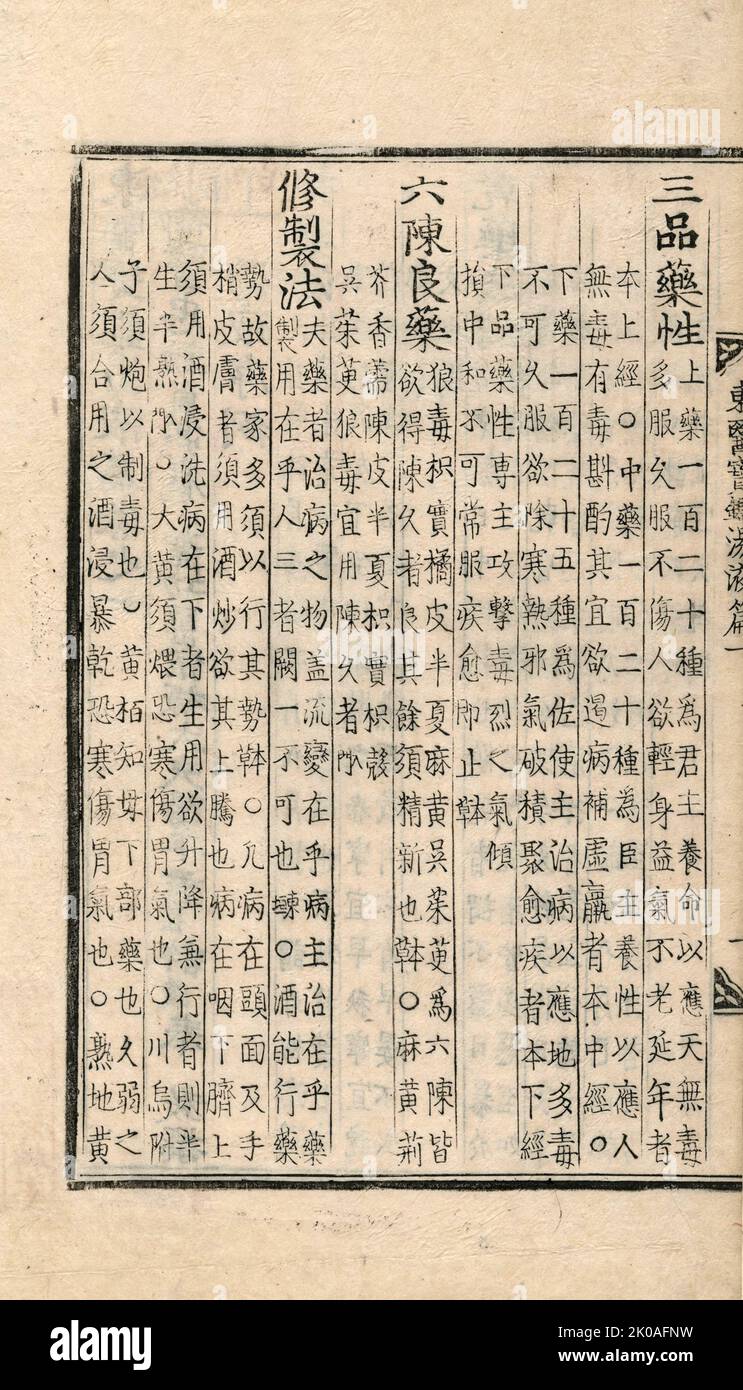 東醫寶鑑湯液篇一
三品藥性
上藥一百二十種爲君主養命以應天無毒
多服久服不傷人欲輕身益氣不老延年者
本上經○中藥一百二十種爲臣主養性以應人
無毒有毒斟酌其宜欲遏病補虛羸者本中經○
下藥一百二十五種爲佐使主治病以應地多毒
不可久服欲除寒熱邪氣破積聚愈疾者本下經
下品藥性專主攻擊毒烈之氣傾
損中和不可常服疾愈即止本草
六陳良藥
狼毒枳實橘皮半夏麻黃吳茱萸爲六陳皆
欲得陳久者良其餘須精新也本草○麻黃荊
芥香薷陳皮半夏枳實枳殼
吳茱萸狼毒宜用陳久者入門
修製法
夫藥者治病之物盖流變在乎病主治在乎藥
製用在乎人三者闕一不可也東垣○酒能行藥
勢故藥家多須以行其勢本草○凡病在頭面及手
梢皮膚者須用酒炒欲其上騰也病在咽下臍上
須用酒浸洗病在下者生用欲升降兼行者則半
生半熟入門○大黃須煨恐寒傷胃氣也○川烏附
子須炮以制毒也○黃栢知母下部藥也久弱之
人須合用之酒浸暴乾恐寒傷胃氣也○熟地黃
alamy
Image ID: 2K0AFNW
www.alamy.com